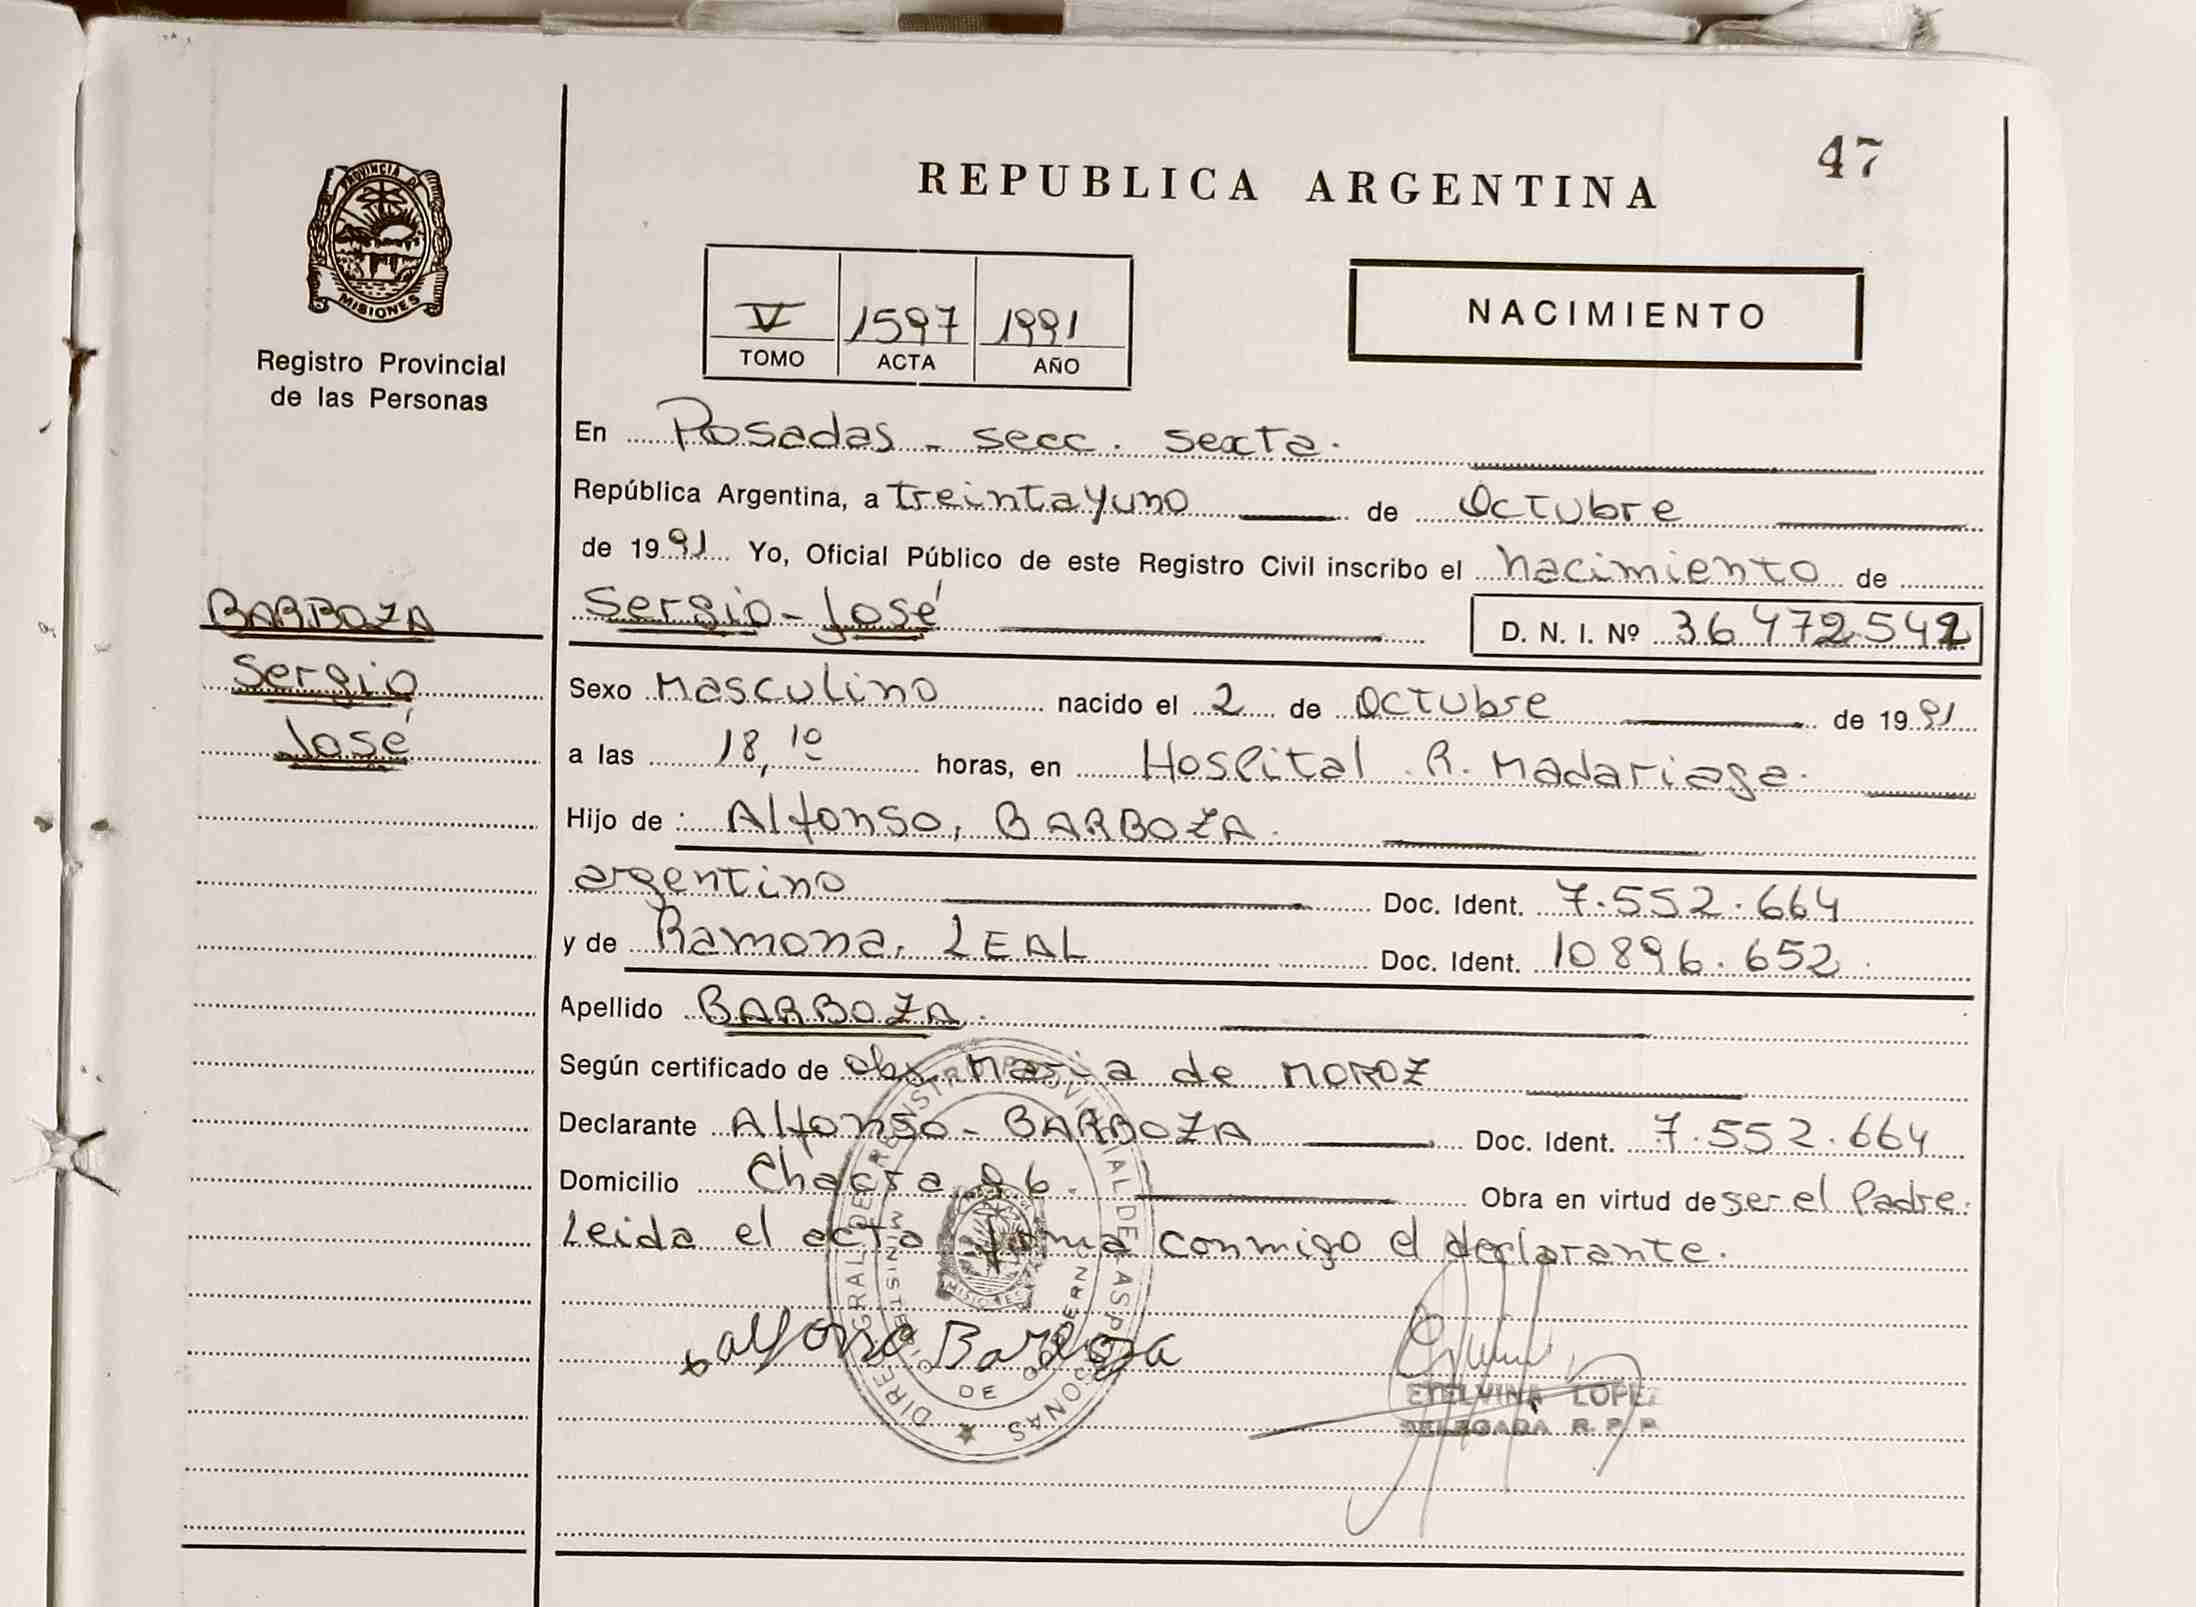 47
REPUBLICA ARGENTINA
PROVINCIA DE
MISIONES
Registro Provincial
de las Personas
V 1597 1991
TOMO ACTA AÑO
NACIMIENTO
En Posadas - secc. sexta.
República Argentina, a treintayuno de Octubre
de 1991 Yo, Oficial Público de este Registro Civil inscribo el nacimiento de
BARBOZA
Sergio
José
Sergio - José D. N. I. Nº 36472542
Sexo Masculino nacido el 2 de Octubre de 1991
a las 18,10 horas, en Hospital R. Madariaga.
Hijo de : Alfonso, BARBOZA.
argentino Doc. Ident. 7.552.664
y de Ramona, LEAL Doc. Ident. 10896.652
Apellido BARBOZA.
Según certificado de Obs. Maria de MOROZ
Declarante Alfonso - BARBOZA Doc. Ident. 7.552.664
Domicilio Chacra 96. Obra en virtud de ser el Padre.
Leida el acta firma conmigo el declarante.
alfonso Barboza
ETELVINA LOPEZ
DELEGADA R. P. P.